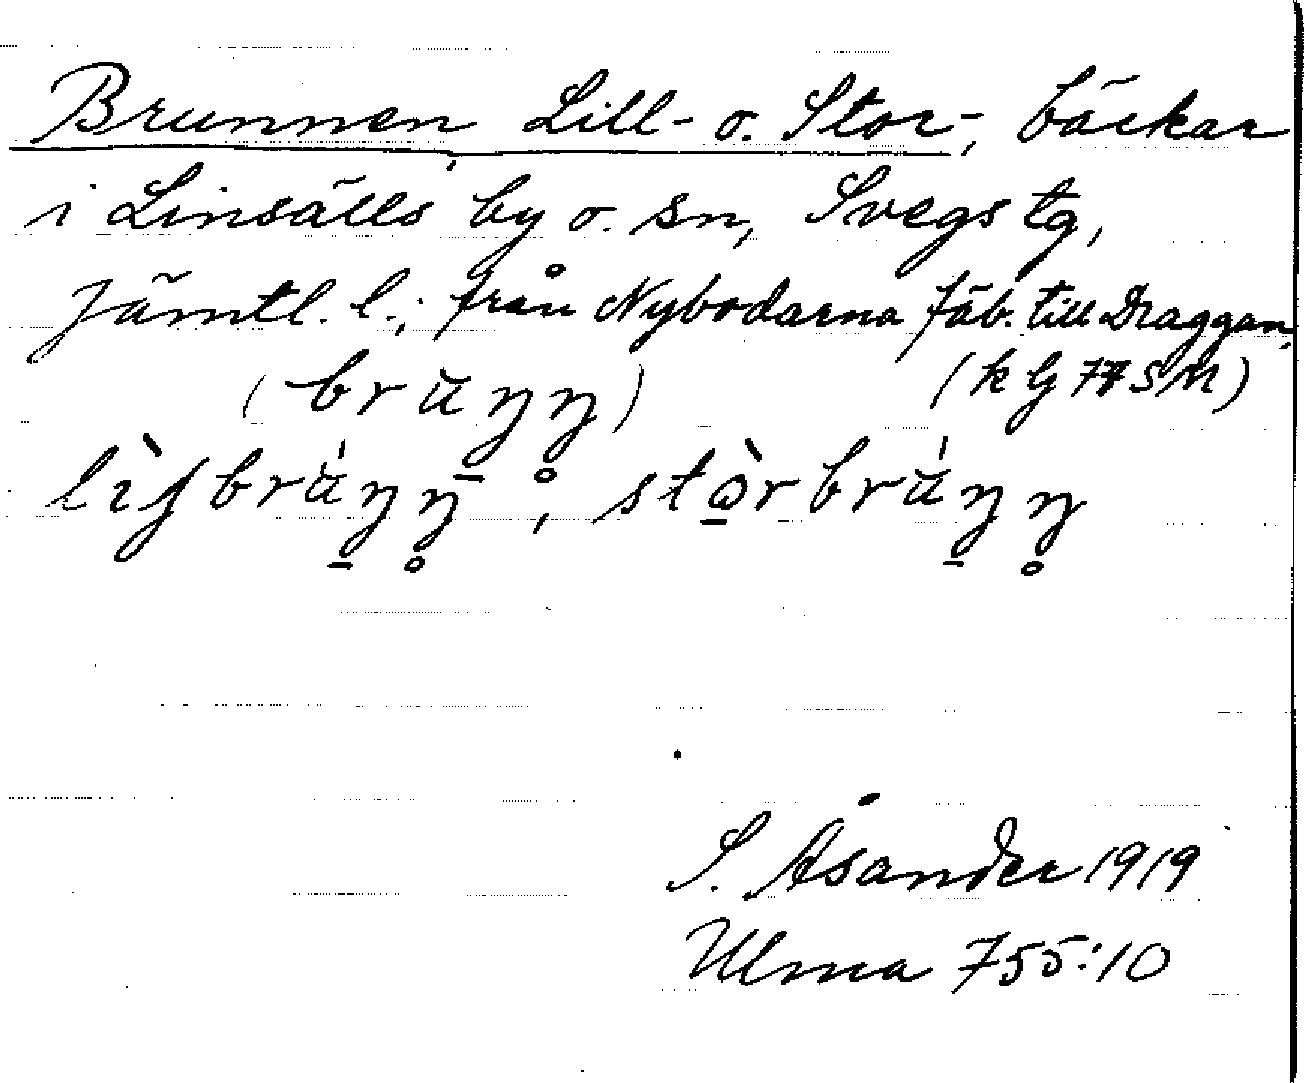 Brunnen, Lill- o. Stor-, bäckar
i Linsälls by o. sn, Svegs tg,
Jämtl. l.; från Nybodarna fäb. till Draggan.
(brŭŋŋ̥) (k G 77 SM)
lìʃbrŭ́ŋŋ̥; stò̠rbrŭ́ŋŋ̥
S. Åsander 1919
Ulma 755:10